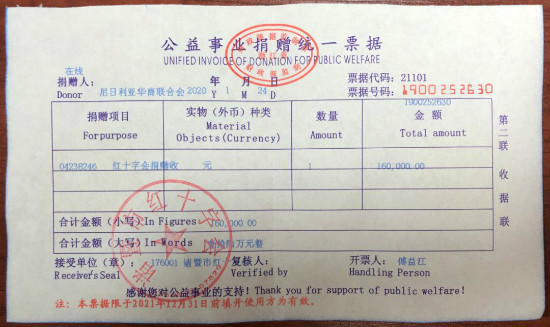 公益事业捐赠统一票据
UNIFIED INVOICE OF DONATION FOR PUBLIC WELFARE
在线
捐赠人： 年 月 日 票据代码：21101
Donor 尼日利亚华商联合会 2020 Y 1 M 24 D 票据号码：1900252630
1900252630
捐赠项目 实物（外币）种类 数量 金额
For purpose Material Objects(Currency) Amount Total amount
04238246 红十字会捐赠收 元 1 160,000.00
合计金额（小写）In Figures 160,000.00
合计金额（大写）In Words 拾陆万元整
接受单位（章）： 176001 诸暨市红 复核人： 开票人： 傅益江
Receiver's Seal Verified by Handling Person
感谢您对公益事业的支持！Thank you for support of public welfare!
注：本票据限于2021年12月31日前填开使用方为有效。
第二联 收据联